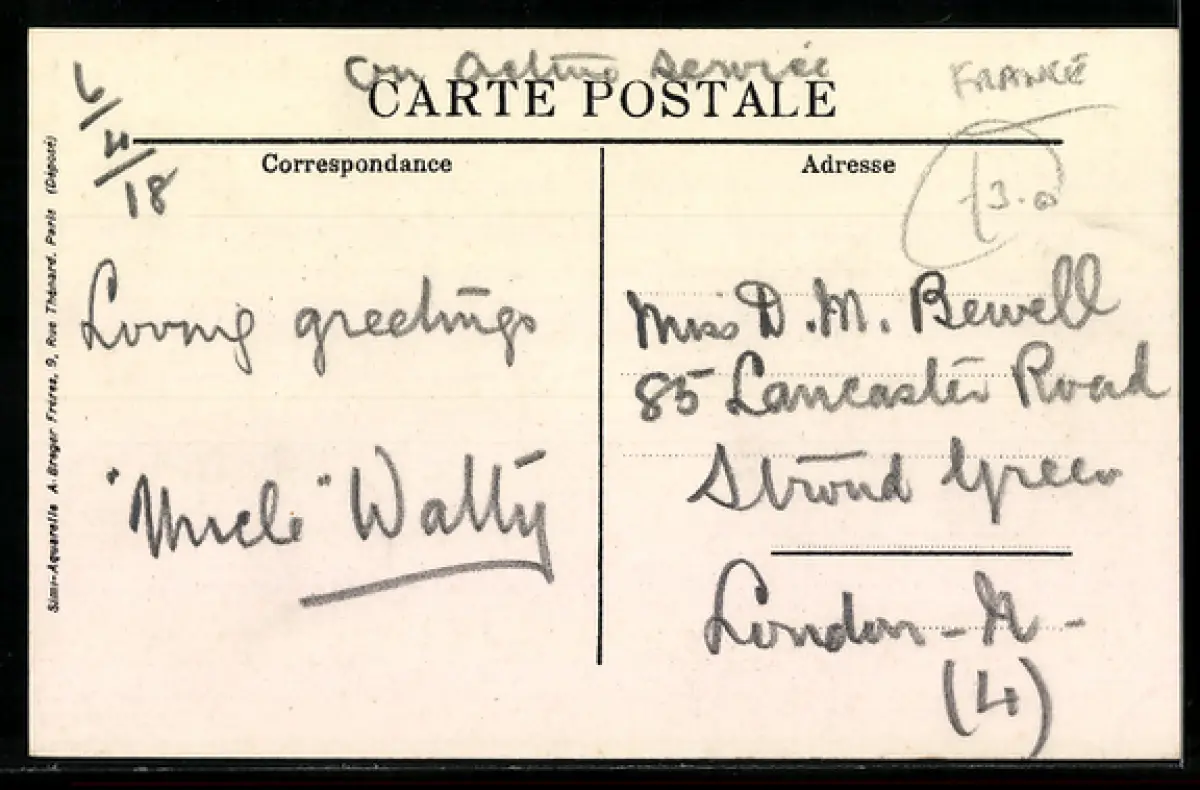 On Active Service
CARTE POSTALE
FRANCE
6/4/18
Correspondance
Adresse
3.0
Loving greetings
"Uncle" Wally
Miss D. M. Bewell
85 Lancaster Road
Stroud Green
London - N -
(4)
Simi-Aquarelle A. Breger Frères, 9, Rue Thénard. Paris (Déposé)